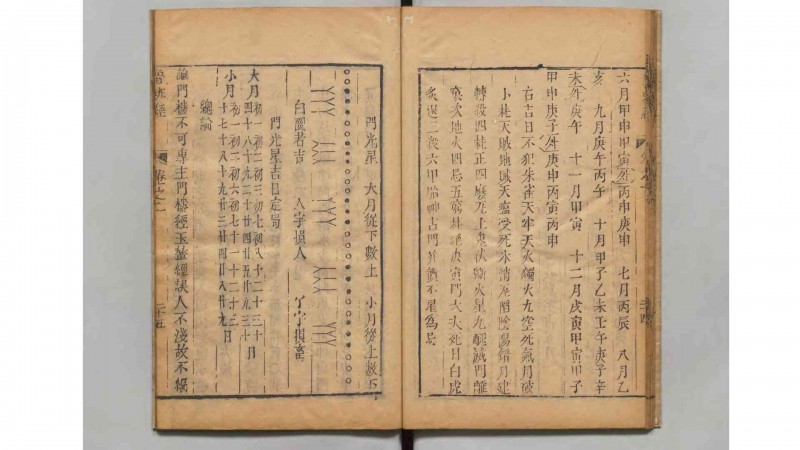 六月甲申甲寅丙申庚申 七月丙辰 八月乙
亥 九月庚午丙午 十月甲子乙未壬午庚子辛
未庚午 十一月甲寅 十二月戊寅甲寅甲子
甲申庚子庚申丙寅丙申
右吉日不犯朱雀天牢天火獨火九空死氣月破
小耗天賊地賊天瘟受死氷消瓦陷陰陽錯月建
轉殺四耗正四廢九土鬼伏斷火星九醜滅門離
窠次地火四忌五窮耗絕庚寅門大夫死日白虎
炙退三殺六甲胎神占門
門光星 大月從下數上 小月從上數下
白圈者吉 人字損人 丫字損畜
門光星吉日定局
大月 初一初二初三初七初八十二十三十
四十八十九二十廿四廿五廿九三十日
小月 初一初二初六初七十一十二十三
十七十八十九廿三廿四廿八廿九日
總論
論門樓不可專主門樓經玉輦經誤人不淺故不編
魯班經 卷之一 二十五